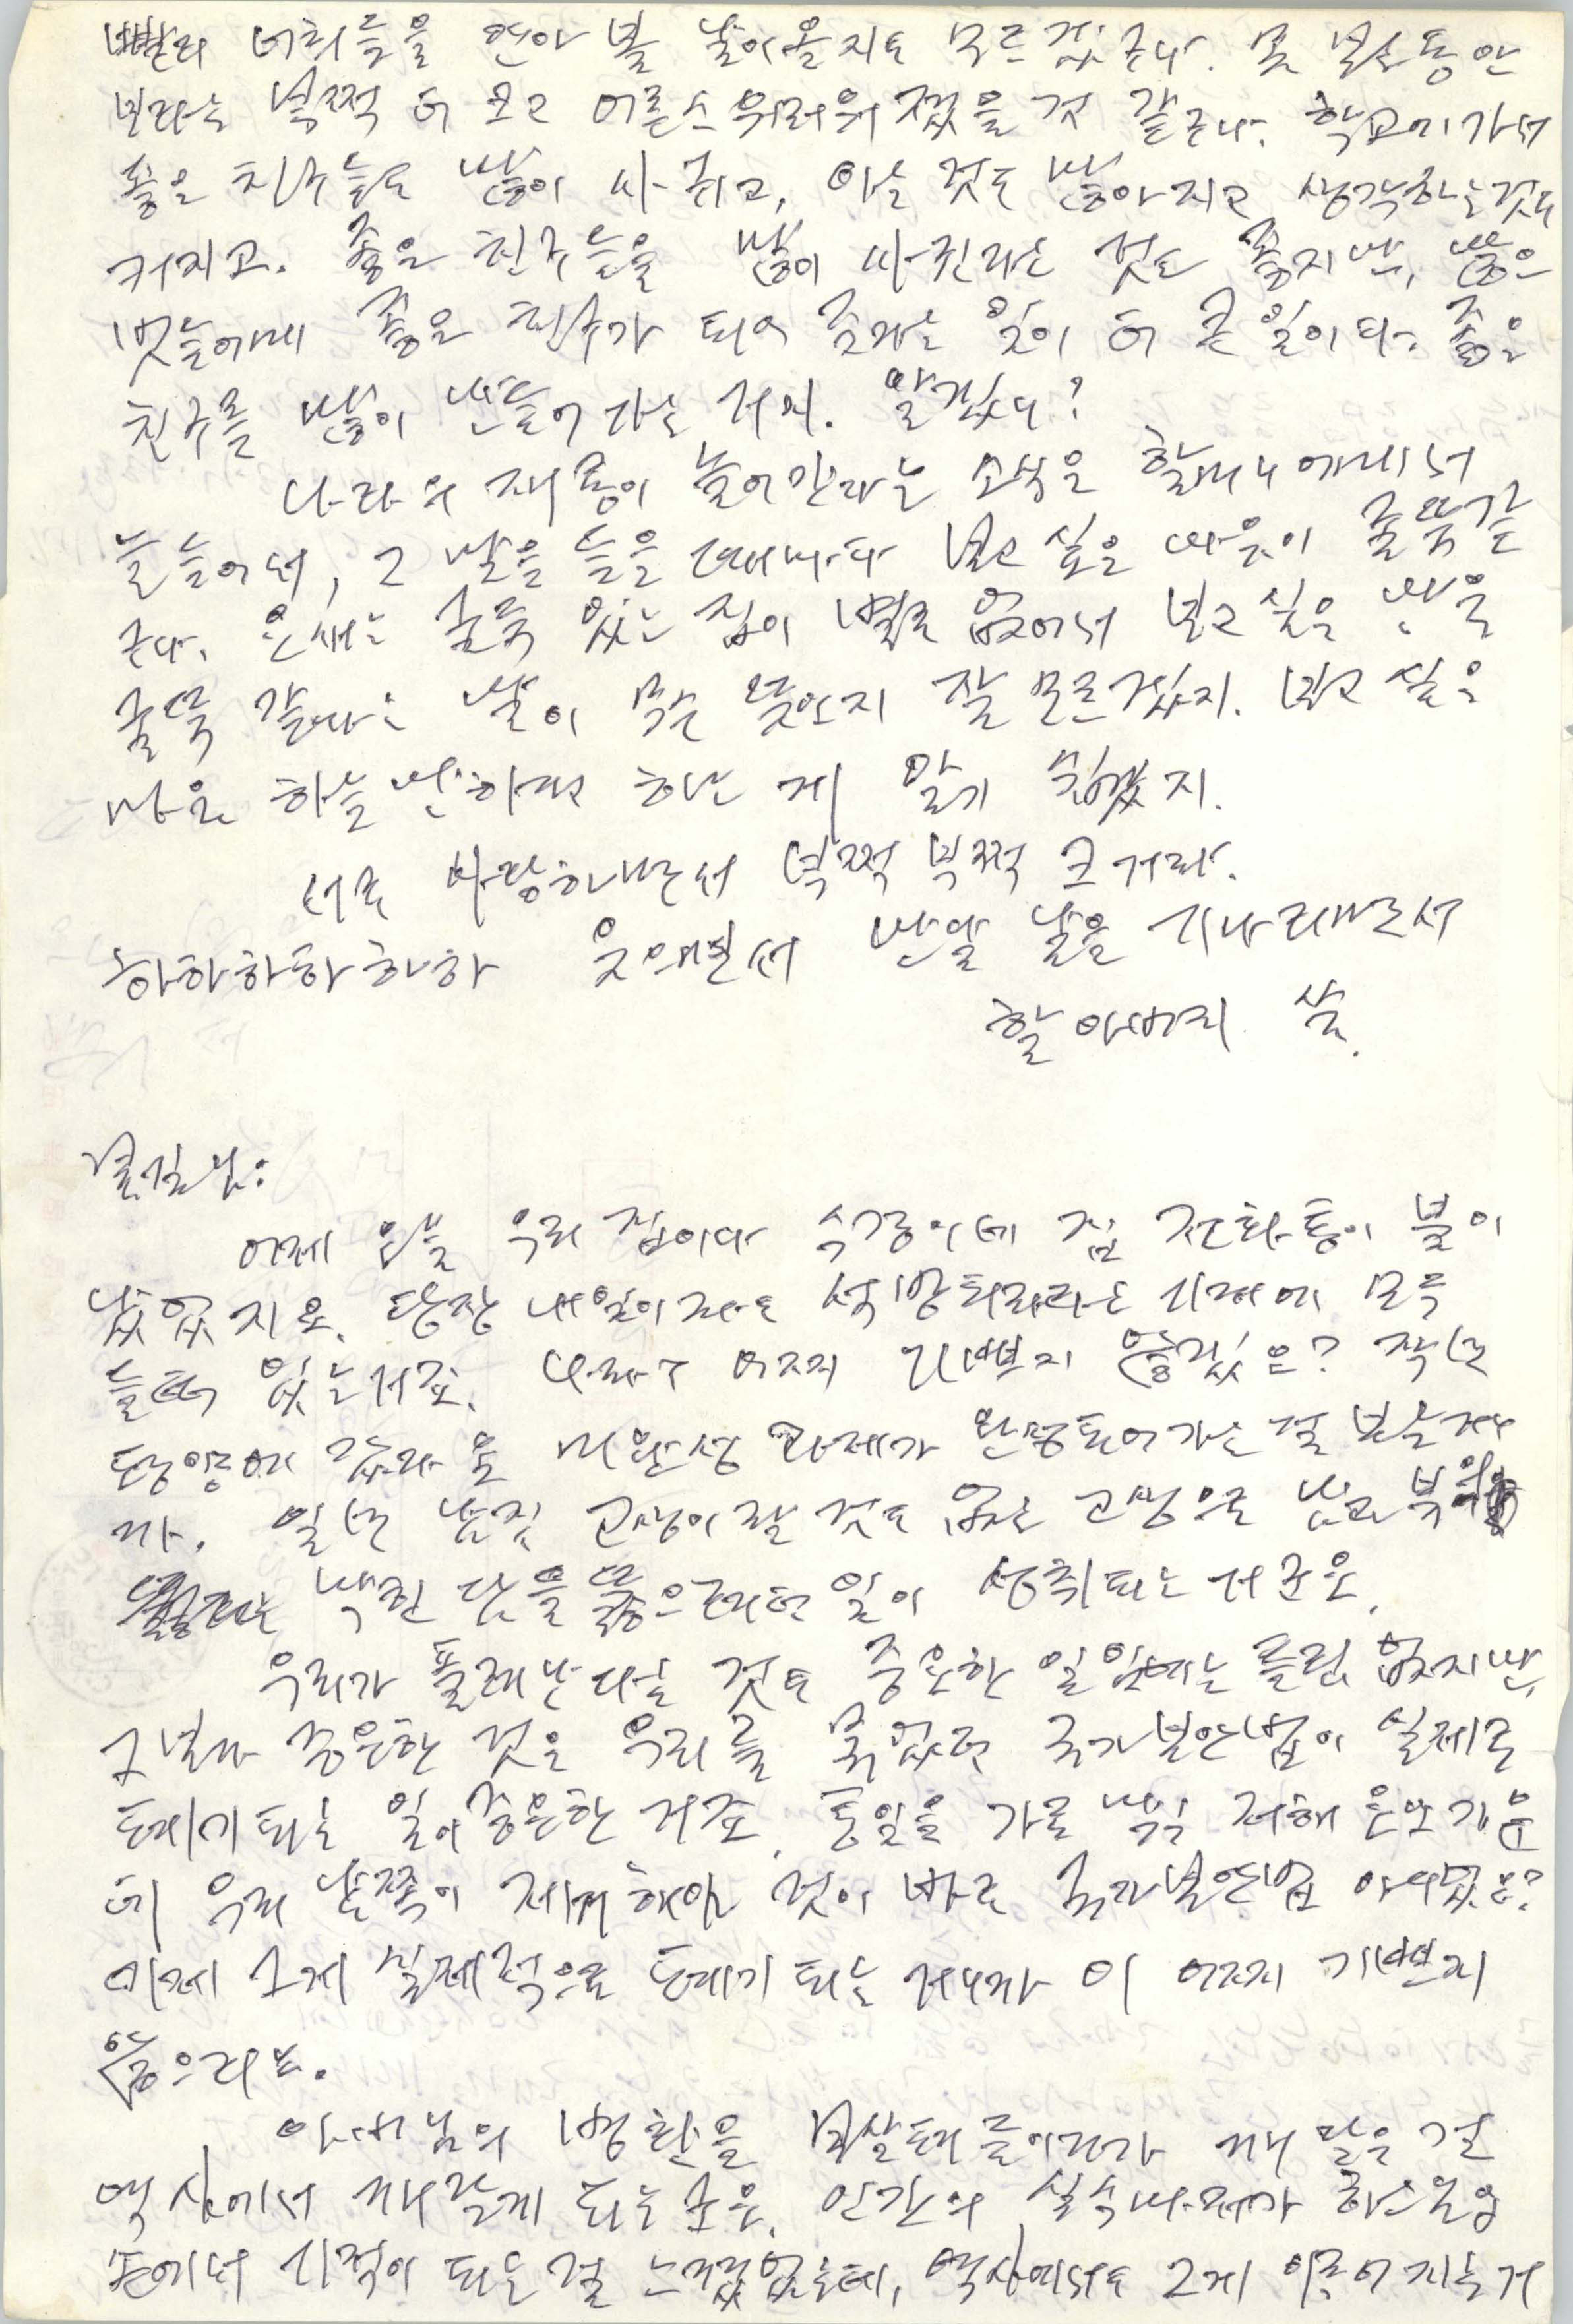 빨리 너희들을 안아 볼 날이 올지도 모르겠구나. 못 본 동안
보라는 부쩍 더 크고 어른스러워졌을 것 같구나. 학교에 가서
좋은 친구들도 많이 사귀고, 아는 것도 많아지고 생각하는 것도
커지고. 좋은 친구들을 많이 사귄다는 것도 좋지만, 많은
벗들에게 좋은 친구가 되어 준다는 일이 더 큰 일이다. 좋은
친구를 많이 만들어 가는 거지. 알겠니?
나라의 재롱이 늘어간다는 소식은 할머니에게서
늘 들어서, 그 말을 들을 때마다 보고 싶은 마음이 굴뚝같
구나. 요새는 굴뚝 있는 집이 별로 없어서 보고 싶은 마음
굴뚝 같다는 말이 무슨 뜻인지 잘 모르겠지. 보고 싶은
마음 하늘만하다고 하는 게 알기 쉽겠지.
서로 사랑하면서 부쩍 부쩍 크거라.
하하하하하하 웃으면서 만날 날을 기다리면서
할아버지 씀.
어제 오늘 우리 집이나 수경이네 집 전화통이 불이
났었지요. 당장 내일이라도 석방되리라는 기대에 모두
들떠 있는 거죠. 나라구 어찌 기쁘지 않겠소? 작년
평양에 갔다 온 미완성 과제가 완성되어 가는 걸 보는 거니
까. 일년 남짓 고생이랄 것도 없는 고생으로 남과 북의
막힌 담을 뚫으려던 일이 성취되는 거군요.
우리가 풀려난다는 것도 중요한 일임에는 틀림 없지만,
그보다 중요한 것은 우리를 묶었던 국가보안법이 실제로
폐기되는 일이 중요한 거죠. 통일을 가로 막아 저해 온 가운
데 우리 남쪽이 제거해야 할 것이 바로 국가보안법 아니었소?
이제 그게 실제적으로 폐기되는 거니까 이 어찌 기쁘지
않으리오.
아버님의 병환을 보살펴 드리다가 깨달은 걸
역사에서 깨닫게 되는군요. 인간의 실수마저가 하느님의
손에서 기적이 되는 걸 느꼈었는데, 역사에서도 그게 이루어지는 거